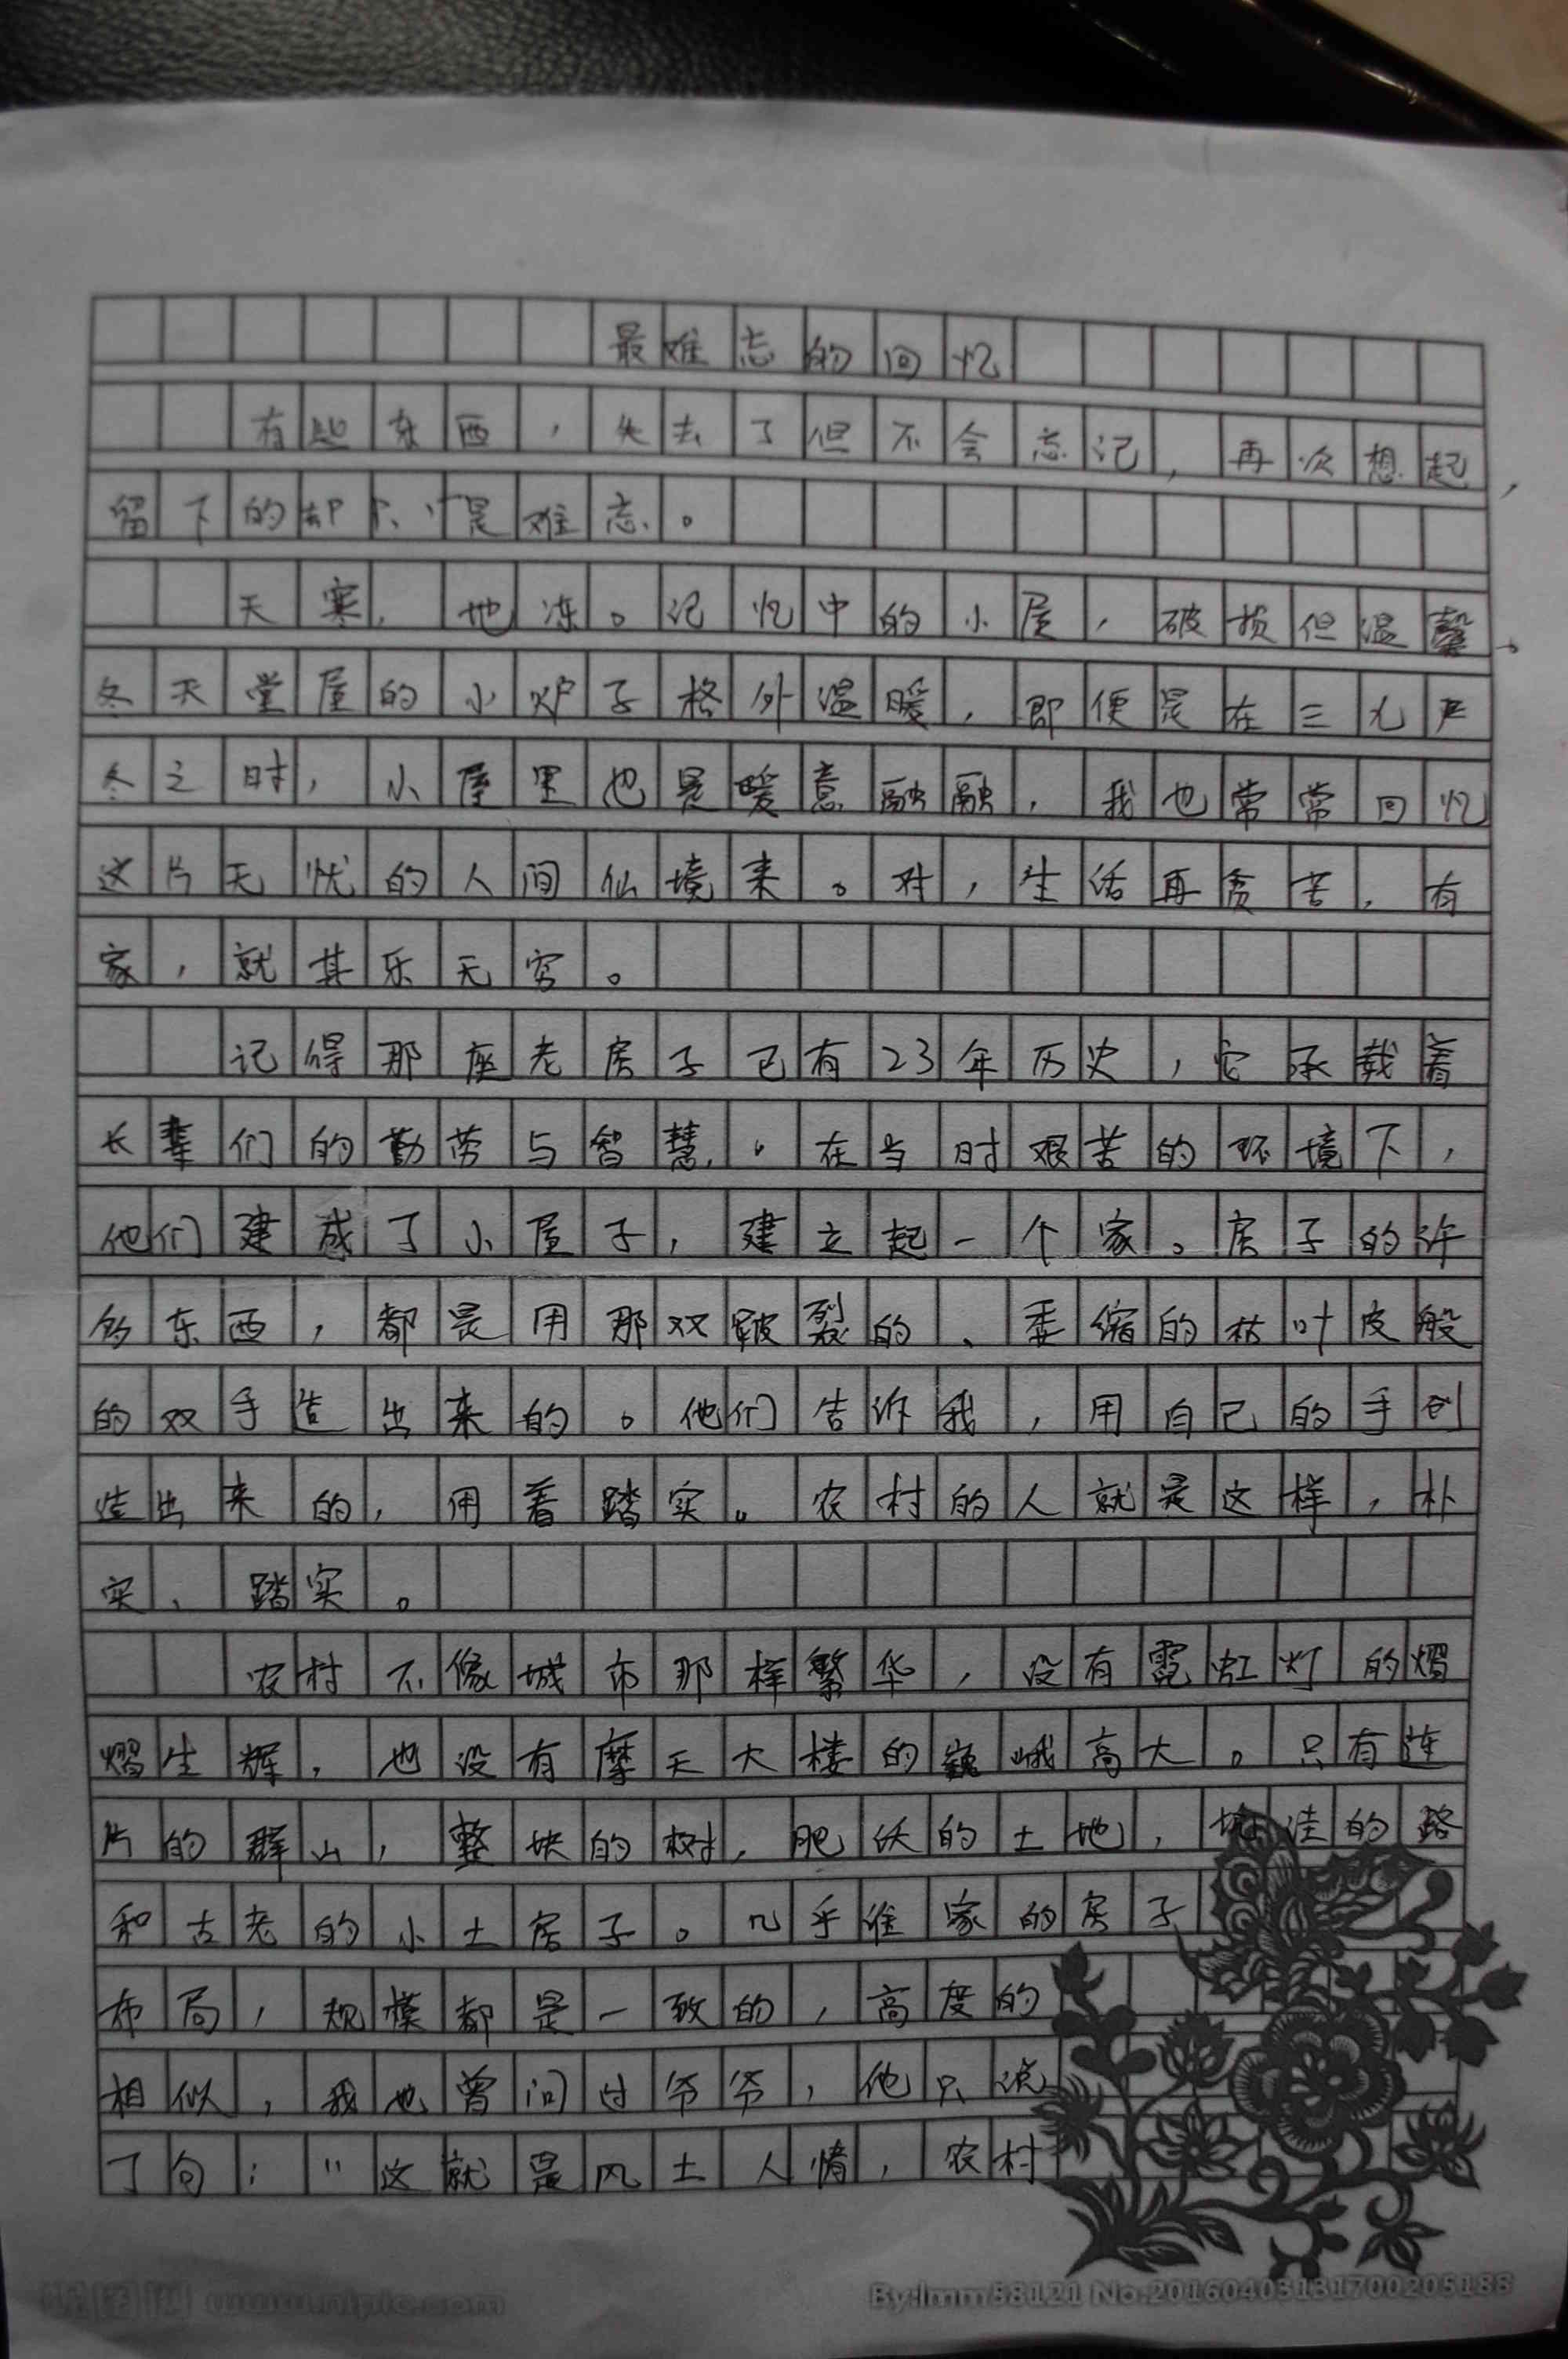 最难忘的回忆
有些东西，失去了但不会忘记，再次想起，
留下的却不止是难忘。
天寒，地冻。记忆中的小屋，破损但温馨。
冬天堂屋的小炉子格外温暖，即便是在三九严
冬之时，小屋里也是暖意融融，我也常常回忆
这片无忧的人间仙境来。对，生活再贪苦，有
家，就其乐无穷。
记得那座老房子已有23年历史，它承载着
长辈们的勤劳与智慧。在当时艰苦的环境下，
他们建成了小屋子，建立起一个家。房子的许
多东西，都是用那双皲裂的、委缩的枯叶皮般
的双手造出来的。他们告诉我，用自己的手创
造出来的，用着踏实。农村的人就是这样，朴
实、踏实。
农村不像城市那样繁华，没有霓虹灯的熠
熠生辉，也没有摩天大楼的巍峨高大。只有连
片的群山，整块的树，肥沃的土地，坑洼的路
和古老的小土房子。几乎谁家的房子
布局，规模都是一致的，高度的
相似，我也曾问过爷爷，他只说
了句："这就是风土人情，农村
www.nipic.com
By:lmm58121 No.20160403131700205188